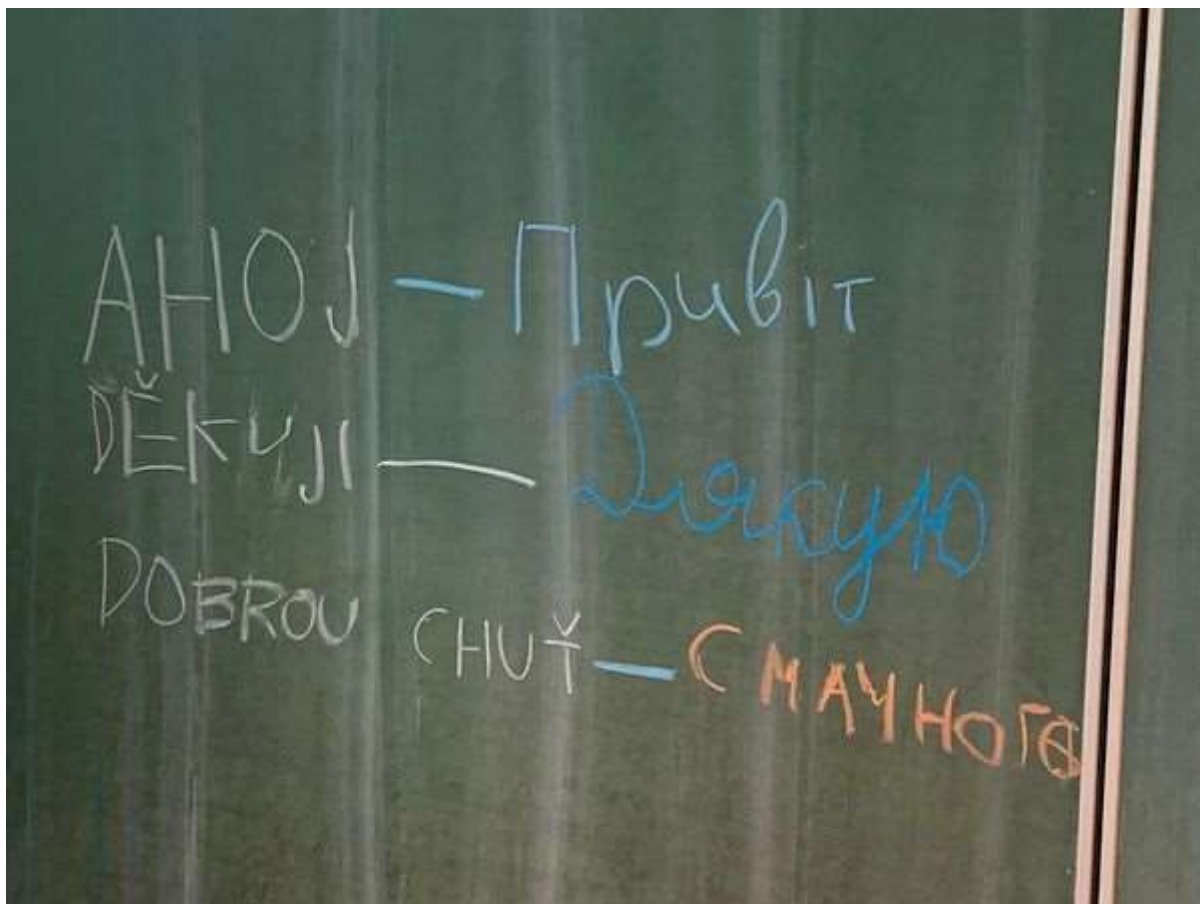 AHOJ — Привіт
DĚKUJI — Дякую
DOBROU CHUŤ — СМАЧНОГО